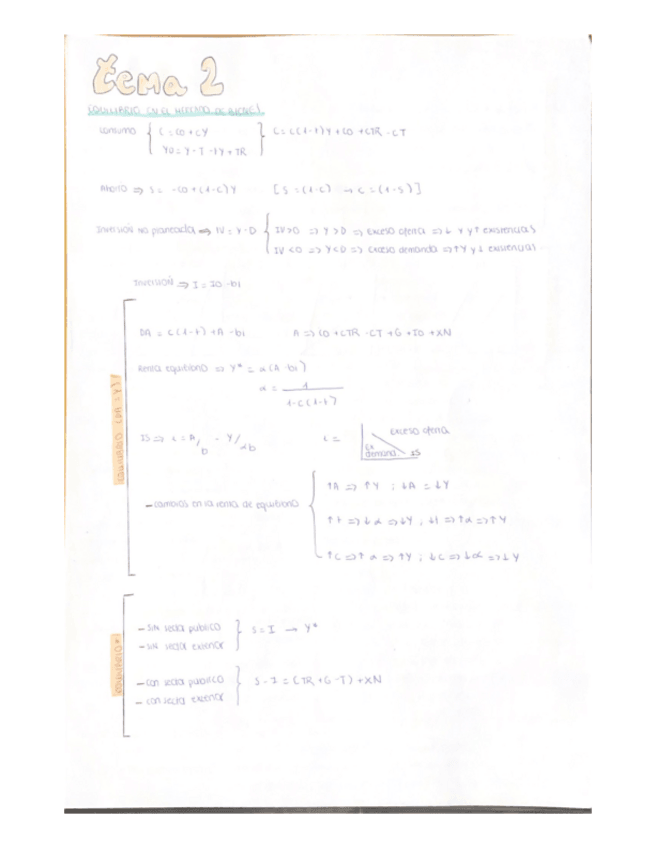 tema 2
EQUILIBRIO EN EL MERCADO DE BIENES
consumo { C = C0 + cY } C = c(1-t)Y + C0 + cTR - cT
YD = Y - T - tY + TR
Ahorro => S = -C0 + (1-c)Y [S = (1-c) → c = (1-s)]
Inversión no planeada => IV = Y - D { IV>0 => Y>D => exceso oferta => ↓ Y y ↑ existencias
IV<0 => Y<D => exceso demanda => ↑Y y ↓ existencias
Inversión => I = I0 - bi
DA = c(1-t) + A - bi A => C0 + cTR - cT + G + I0 + XN
Renta equilibrio => Y* = α(A - bi)
α = 1 / 1-c(1-t)
IS => i = A/b - Y/αb i = exceso oferta
Ex demanda IS
- cambios en la renta de equilibrio { ↑A => ↑Y ; ↓A = ↓Y
↑t => ↓α => ↓Y , ↓t => ↑α => ↑Y
↑c => ↑α => ↑Y ; ↓c => ↓α => ↓Y
- sin sector público } S = I → Y*
- sin sector exterior
- con sector público } S - I = (TR + G - T) + XN
- con sector exterior